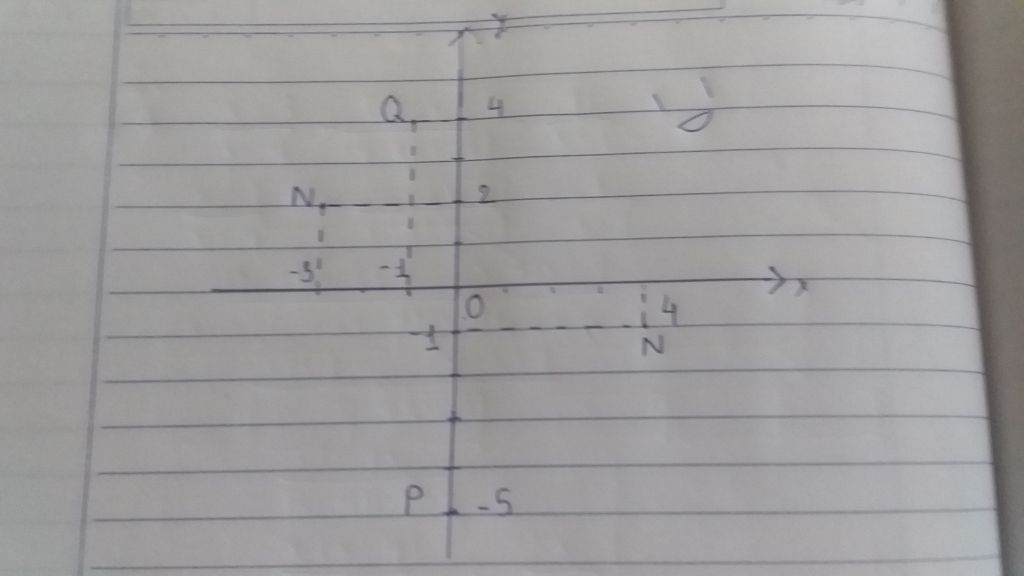 y
Q 4
N 2
-3 -1
x
0
4
-1
N
P -5